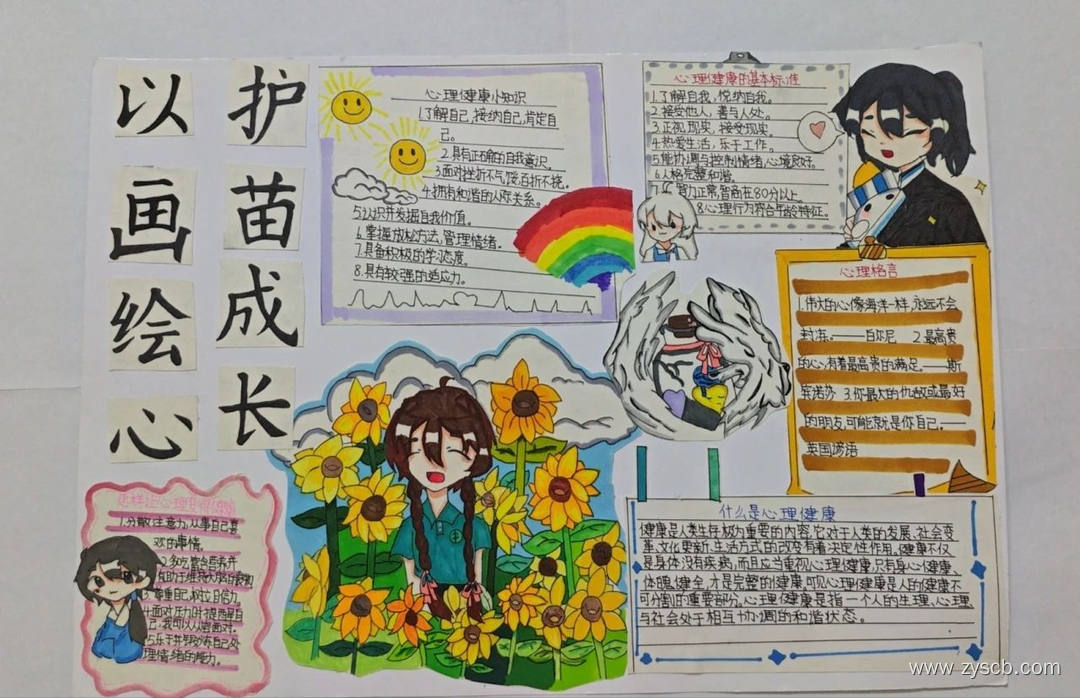 以画绘心
护苗成长
心理健康小知识
1.了解自己,接纳自己,肯定自
己。
2.具有正确的自我意识。
3.面对挫折不气馁,百折不挠。
4.拥有和谐的人际关系。
5.认识开发掘自我价值。
6.掌握放松方法,管理情绪。
7.具备积极的学习态度。
8.具有较强的适应力。
心理健康的基本标准
1.了解自我,悦纳自我。
2.接受他人,善与人处。
3.正视现实,接受现实。
4.热爱生活,乐于工作。
5.能协调与控制情绪,心境良好。
6.人格完整和谐。
7.智力正常,智商在80分以上。
8.心理行为符合年龄特征。
心理格言
1.伟大的心像海洋一样,永远不会
封冻。——白尔尼 2.最高贵
的心,有着最高贵的满足。——斯
宾诺莎 3.你最大的也敌或最好
的朋友可能就是你自己。——
英国谚语
怎样让心理
1.分散注意力,从事自己喜
欢的事情。
3.尊重自己,树立自信力。
4.面对压力时
己,我可以从容面对。
理情绪的能力。
什么是心理健康
健康是人类生存极为重要的内容,它对于人类的发展、社会变
革、文化更新、生活方式的改变有着决定性作用。健康不仅
是身体没有疾病,而且应当重视心理健康,只有身心健康、
体魄健全,才是完整的健康,可见心理健康是人的健康不
可分割的重要部分。心理健康是指一个人的生理、心理
与社会处于相互协调的和谐状态。
www.zyscb.com